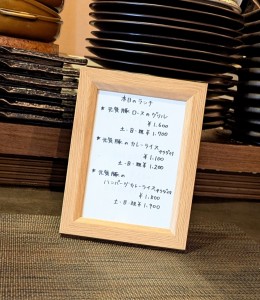 本日のランチ
* 佐賀豚ロースのグリル
¥1.600
土・日・祝 ¥1.700
* 佐賀豚のカレーライス サラダ付
¥1.100
土・日・祝 ¥1.200
* 佐賀豚の
ハンバーグカレーライス サラダ付
¥1.800
土・日・祝 ¥1.900